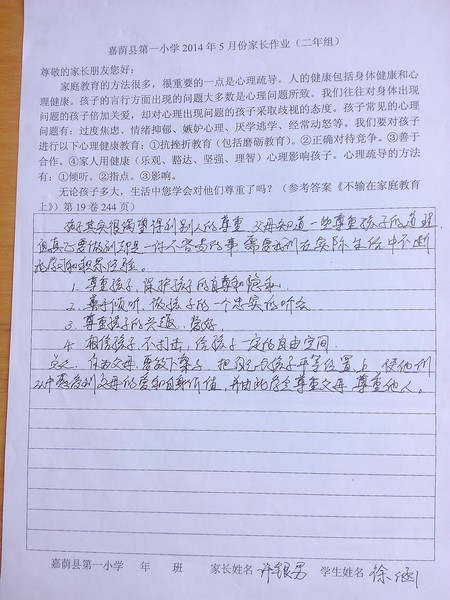 嘉荫县第一小学 2014 年 5 月份家长作业（二年组）
尊敬的家长朋友您好：
家庭教育的方法很多，很重要的一点是心理疏导。人的健康包括身体健康和心
理健康。孩子的言行方面出现的问题大多数是心理问题所致。我们往往对身体出现
问题的孩子倍加关爱，却对心理出现问题的孩子采取歧视的态度。孩子常见的心理
问题有：过度焦虑、情绪抑郁、嫉妒心理、厌学逃学、经常动怒等。我们要对孩子
进行以下心理健康教育：①抗挫折教育（包括磨砺教育）。②正确对待竞争。③善于
合作。④家人用健康（乐观、豁达、坚强、理智）心理影响孩子。心理疏导的方法
有：①倾听。②指点。③影响。
无论孩子多大，生活中您学会对他们尊重了吗？（参考答案《不输在家庭教育
上》）第 19 卷 244 页）
孩子其实很渴望得到别人的尊重，父母知道一些尊重孩子的道理，
但真正要做到却是一件不容易的事，需要我们在实际生活中不断
的学习和积累经验。
1. 尊重孩子，保护孩子的自尊和隐私。
2. 善于倾听，做孩子的一个忠实的听众
3. 尊重孩子的兴趣、爱好，
4. 相信孩子，不打击，给孩子一定的自由空间
总之，作为父母，要放下架子，把自己与孩子平等位置上，使他们
从中感受到父母的爱和自身价值，并由此学会尊重父母，尊重他人。
嘉荫县第一小学 年 班 家长姓名 许银男 学生姓名 徐涵